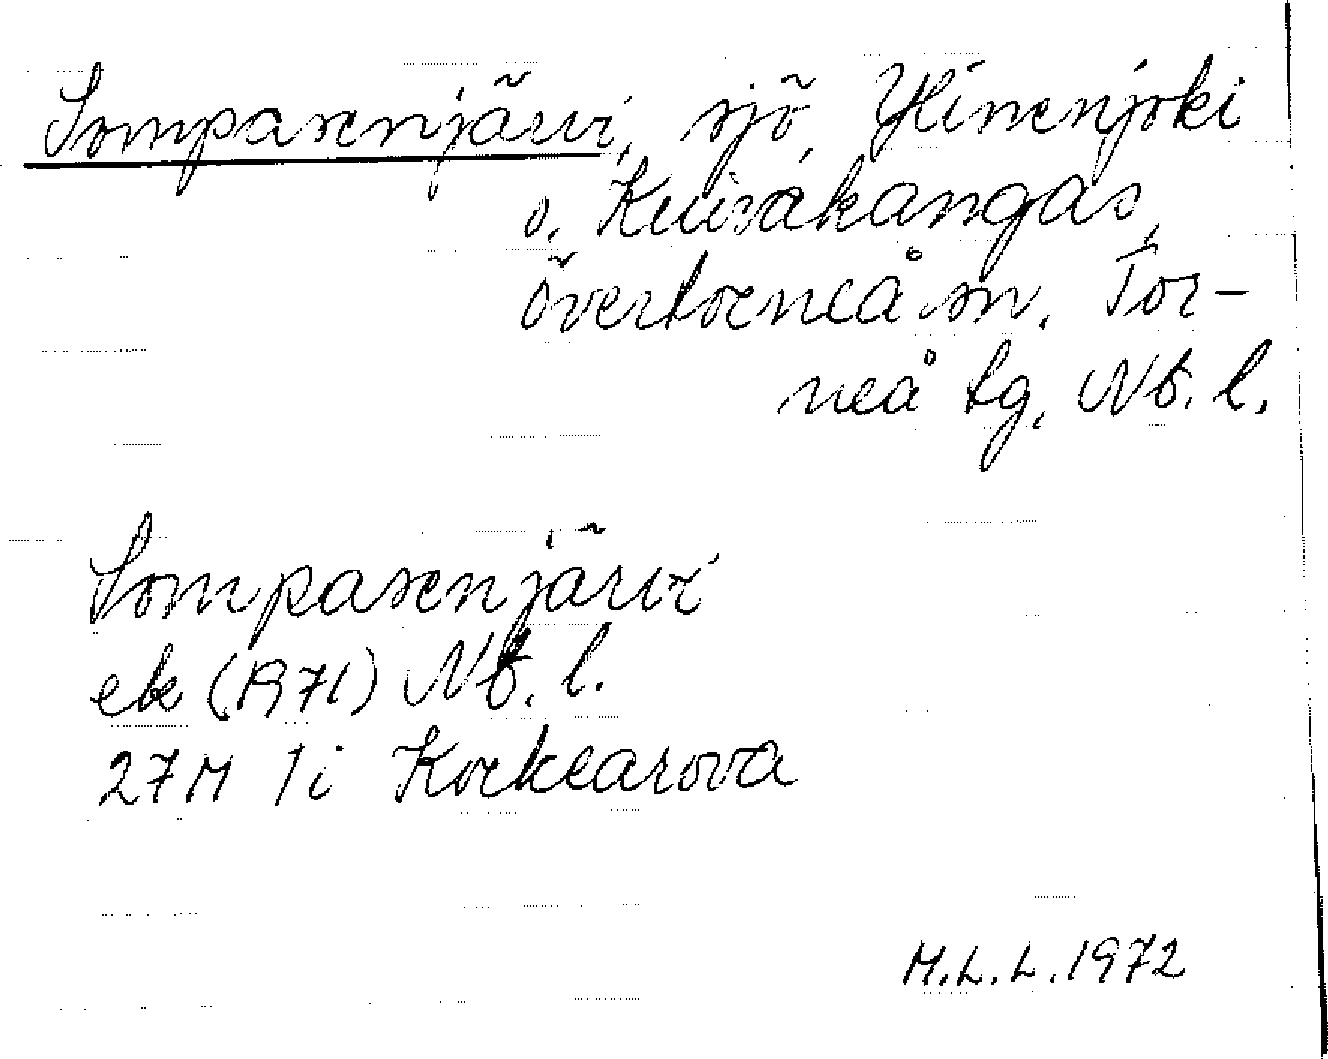 Sompasenjärvi, sjö, Ylinenjoki
o. Kuivakangas,
Övertorneå sn. Tor-
neå tg. Nb. l.
Sompasenjärvi
ek (1971) Nb. l.
27M 1i Korkearova
M.L.L.1972